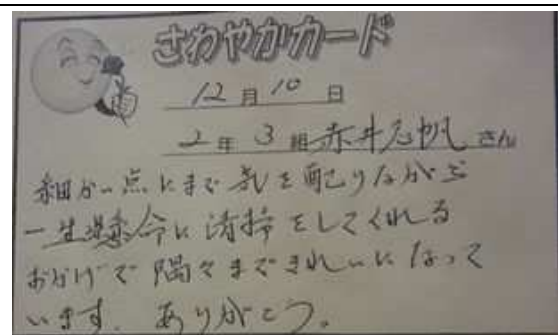 さわやかカード
12月10日
2年3組赤井志帆さん
細かい点にまで気を配りながら
一生懸命に清掃をしてくれる
おかげで隅々まできれいになって
います。ありがとう。